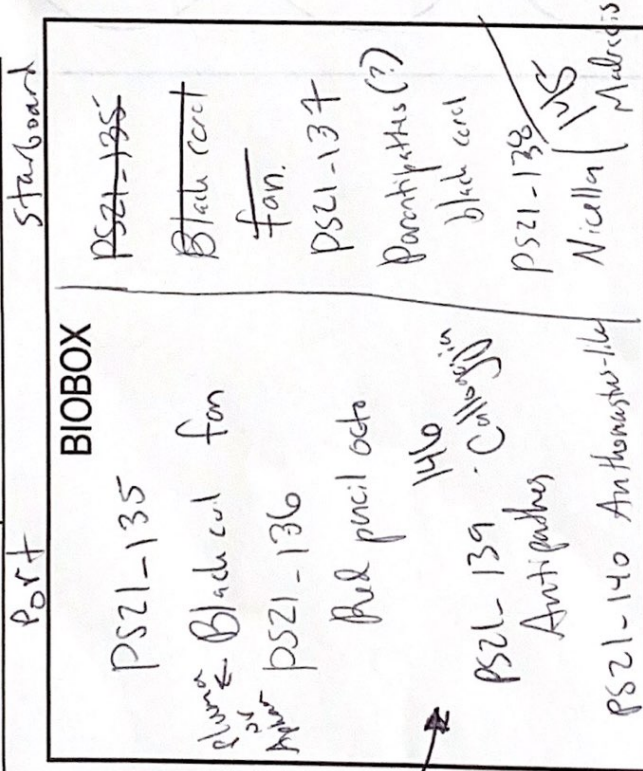 Port
Starboard
BIOBOX
PS21-135
Black coral fan
PS21-136
Red pencil octo
146
PS21-139
Antipathes
PS21-140 Anthomastus-like
PS21-135
Black coral
fan.
PS21-137
Parantipathes (?)
black coral
PS21-138
Nicella